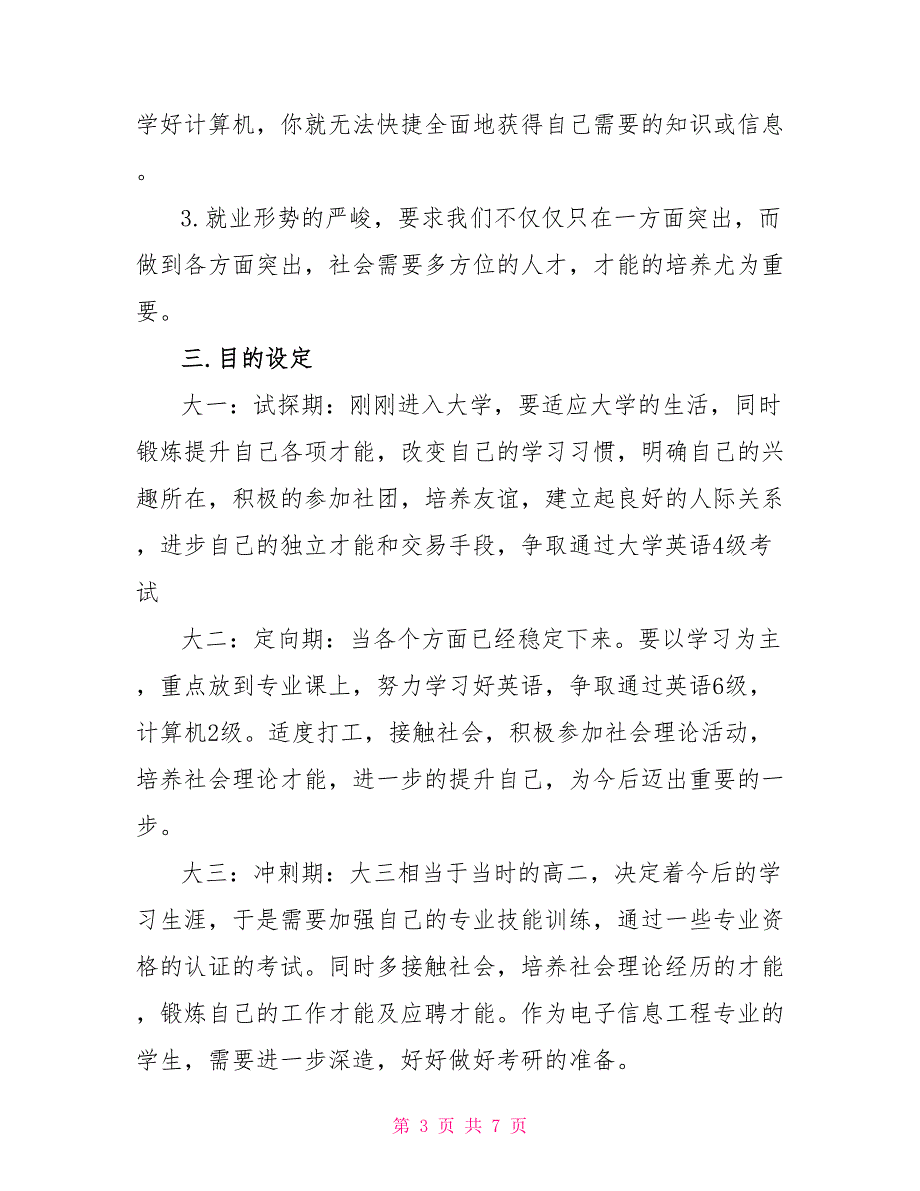 学好计算机，你就无法快捷全面地获得自己需要的知识或信息
。
3.就业形势的严峻，要求我们不仅仅只在一方面突出，而
做到各方面突出，社会需要多方位的人才，才能的培养尤为重
要。
三.目的设定
大一：试探期：刚刚进入大学，要适应大学的生活，同时
锻炼提升自己各项才能，改变自己的学习习惯，明确自己的兴
趣所在，积极的参加社团，培养友谊，建立起良好的人际关系
，进步自己的独立才能和交易手段，争取通过大学英语4级考
试
大二：定向期：当各个方面已经稳定下来。要以学习为主
，重点放到专业课上，努力学习好英语，争取通过英语6级，
计算机2级。适度打工，接触社会，积极参加社会理论活动，
培养社会理论才能，进一步的提升自己，为今后迈出重要的一
步。
大三：冲刺期：大三相当于当时的高二，决定着今后的学
习生涯，于是需要加强自己的专业技能训练，通过一些专业资
格的认证的考试。同时多接触社会，培养社会理论经历的才能
，锻炼自己的工作才能及应聘才能。作为电子信息工程专业的
学生，需要进一步深造，好好做好考研的准备。
第 3 页 共 7 页